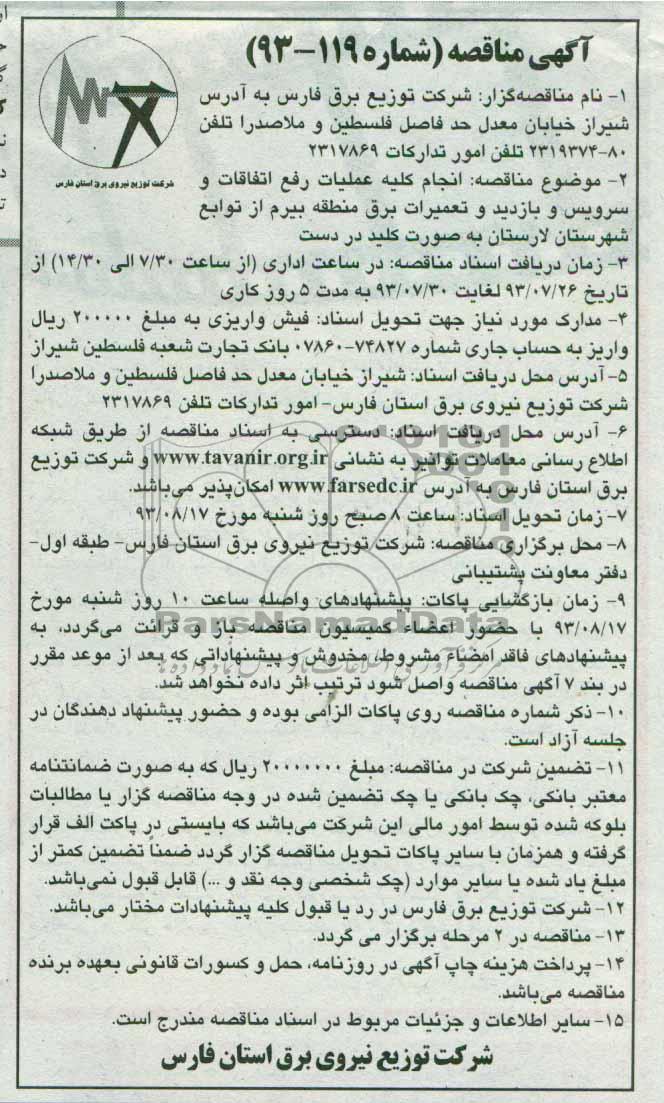 آگهی مناقصه (شماره ۱۱۹-۹۳)
شرکت توزیع نیروی برق استان فارس
۱- نام مناقصه‌گزار: شرکت توزیع برق فارس به آدرس
شیراز خیابان معدل حد فاصل فلسطین و ملاصدرا تلفن
۸۰-۲۳۱۹۳۷۴ تلفن امور تدارکات ۲۳۱۷۸۶۹
۲- موضوع مناقصه: انجام کلیه عملیات رفع اتفاقات و
سرویس و بازدید و تعمیرات برق منطقه بیرم از توابع
شهرستان لارستان به صورت کلید در دست
۳- زمان دریافت اسناد مناقصه: در ساعت اداری (از ساعت ۷/۳۰ الی ۱۴/۳۰) از
تاریخ ۹۳/۰۷/۲۶ لغایت ۹۳/۰۷/۳۰ به مدت ۵ روز کاری
۴- مدارک مورد نیاز جهت تحویل اسناد: فیش واریزی به مبلغ ۲۰۰۰۰۰ ریال
واریز به حساب جاری شماره ۷۴۸۲۷-۰۷۸۶۰ بانک تجارت شعبه فلسطین شیراز
۵- آدرس محل دریافت اسناد: شیراز خیابان معدل حد فاصل فلسطین و ملاصدرا
شرکت توزیع نیروی برق استان فارس- امور تدارکات تلفن ۲۳۱۷۸۶۹
۶- آدرس محل دریافت اسناد: دسترسی به اسناد مناقصه از طریق شبکه
اطلاع رسانی معاملات توانیر به نشانی www.tavanir.org.ir و شرکت توزیع
برق استان فارس به آدرس www.farsedc.ir امکان‌پذیر می‌باشد.
۷- زمان تحویل اسناد: ساعت ۸ صبح روز شنبه مورخ ۹۳/۰۸/۱۷
۸- محل برگزاری مناقصه: شرکت توزیع نیروی برق استان فارس- طبقه اول-
دفتر معاونت پشتیبانی
۹- زمان بازگشایی پاکات: پیشنهادهای واصله ساعت ۱۰ روز شنبه مورخ
۹۳/۰۸/۱۷ با حضور اعضاء کمیسیون مناقصه باز و قرائت می‌گردد، به
پیشنهادهای فاقد امضاء مشروط، مخدوش و پیشنهاداتی که بعد از موعد مقرر
در بند ۷ آگهی مناقصه واصل شود ترتیب اثر داده نخواهد شد.
۱۰- ذکر شماره مناقصه روی پاکات الزامی بوده و حضور پیشنهاد دهندگان در
جلسه آزاد است.
۱۱- تضمین شرکت در مناقصه: مبلغ ۲۰۰۰۰۰۰۰ ریال که به صورت ضمانتنامه
معتبر بانکی، چک بانکی یا چک تضمین شده در وجه مناقصه گزار یا مطالبات
بلوکه شده توسط امور مالی این شرکت می‌باشد که بایستی در پاکت الف قرار
گرفته و همزمان با سایر پاکات تحویل مناقصه گزار گردد ضمناً تضمین کمتر از
مبلغ یاد شده یا سایر موارد (چک شخصی وجه نقد و ...) قابل قبول نمی‌باشد.
۱۲- شرکت توزیع برق فارس در رد یا قبول کلیه پیشنهادات مختار می‌باشد.
۱۳- مناقصه در ۲ مرحله برگزار می گردد.
۱۴- پرداخت هزینه چاپ آگهی در روزنامه، حمل و کسورات قانونی بعهده برنده
مناقصه می‌باشد.
۱۵- سایر اطلاعات و جزئیات مربوط در اسناد مناقصه مندرج است.
شرکت توزیع نیروی برق استان فارس
ParsNamadData